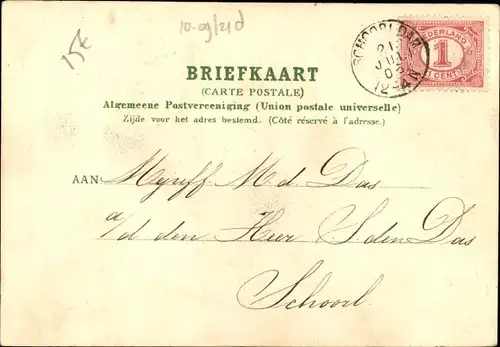 15€
10-09/21d
SCHOORLDAM
21
JUL
05
12-4N
NEDERLAND
1
CENT
BRIEFKAART
(CARTE POSTALE)
Algemeene Postvereeniging (Union postale universelle)
Zijde voor het adres bestemd. (Côté réservé à l'adresse.)
AAN Mejuff. M. d. Das
a/d den Heer S. den Das
Schoorl.